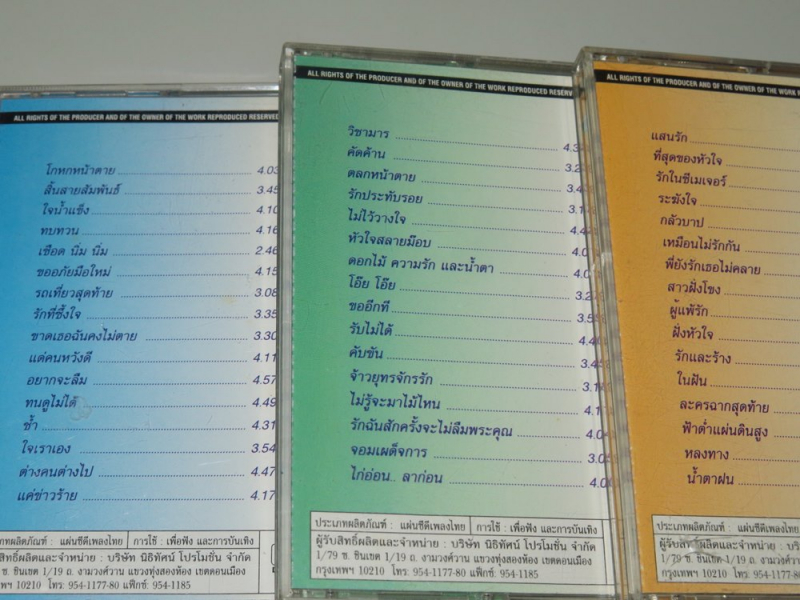 ALL RIGHTS OF THE PRODUCER AND OF THE OWNER OF THE WORK REPRODUCED RESERVED
โกหกหน้าตาย 4.03
สิ้นสายสัมพันธ์ 3.45
ใจน้ำแข็ง 4.10
ทบทวน 4.16
เชือด นิ่ม นิ่ม 2.46
ขออภัยมือใหม่ 4.15
รถเที่ยวสุดท้าย 3.08
รักที่ซึ้งใจ 3.35
ขาดเธอฉันคงไม่ตาย 3.30
แด่คนหวังดี 4.11
อยากจะลืม 4.57
ทนดูไม่ได้ 4.49
ช้ำ 4.31
ใจเราเอง 3.54
ต่างคนต่างไป 4.47
แค่ข่าวร้าย 4.17
ภทผลิตภัณฑ์ : แผ่นซีดีเพลงไทย การใช้ : เพื่อฟัง และการบันเทิง
สิทธิ์ผลิตและจำหน่าย : บริษัท นิธิทัศน์ โปรโมชั่น จำกัด
ซ. ชินเขต 1/19 ถ. งามวงศ์วาน แขวงทุ่งสองห้อง เขตดอนเมือง
เทพฯ 10210 โทร: 954-1177-80 แฟ็กซ์: 954-1185
ALL RIGHTS OF THE PRODUCER AND OF THE OWNER OF THE WORK REPRODUCED RESERV
วิชามาร 4.3
คัดค้าน 3.2
ตลกหน้าตาย 3.4
รักประทับรอย 3.1
ไม่ไว้วางใจ 4.4
หัวใจสลายม๊อบ 4.0
ดอกไม้ ความรัก และน้ำตา 4.0
โอ๊ย โอ๊ย 3.2
ขออีกที 3.5
รับไม่ได้ 4.4
คับขัน 3.4
จ้าวยุทธจักรรัก 3.1
ไม่รู้จะมาไม้ไหน 4.1
รักฉันสักครั้งจะไม่ลืมพระคุณ 4.04
จอมเผด็จการ 3.0
ไก่อ่อน.. ลาก่อน 4.0
ประเภทผลิตภัณฑ์ : แผ่นซีดีเพลงไทย การใช้ : เพื่อฟัง และการบันเทิง
ผู้รับสิทธิ์ผลิตและจำหน่าย : บริษัท นิธิทัศน์ โปรโมชั่น จำกัด
1/79 ซ. ชินเขต 1/19 ถ. งามวงศ์วาน แขวงทุ่งสองห้อง เขตดอนเมือง
กรุงเทพฯ 10210 โทร: 954-1177-80 แฟ็กซ์: 954-1185
ALL RIGHTS OF THE PRODUCER AND OF THE OWNER OF THE WORK
แสนรัก
ที่สุดของหัวใจ
รักในซีเมเจอร์
ระฆังใจ
กลัวบาป
เหมือนไม่รักกัน
พี่ยังรักเธอไม่คลาย
สาวฝั่งโขง
ผู้แพ้รัก
ฝั่งหัวใจ
รักและร้าง
ในฝัน
ละครฉากสุดท้าย
ฟ้าต่ำแผ่นดินสูง
หลงทาง
น้ำตาฝน
ประเภทผลิตภัณฑ์ : แผ่นซีดีเพลงไทย
ผู้รับสิทธิ์ผลิตและจำหน่าย : บริษัท
1/79 ซ. ชินเขต 1/19 ถ. งามวงศ์วาน
กรุงเทพฯ 10210 โทร: 954-1177-80